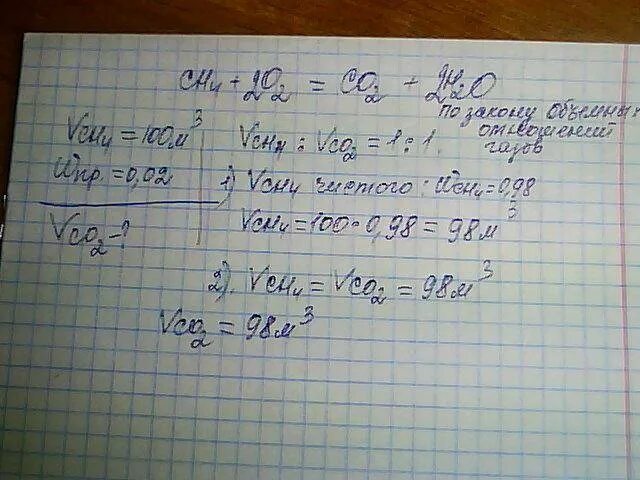 CH₄ + 2O₂ = CO₂ + 2H₂O
По закону объемных
отношений
газов
VCH₄ = 100м³
VCH₄ : VCO₂ = 1 : 1.
Wпр. = 0,02
1) VCH₄ чистого : WCH₄ = 0,98
VCO₂ - ?
VCH₄ = 100 · 0,98 = 98м³
2). VCH₄ = VCO₂ = 98м³
VCO₂ = 98м³